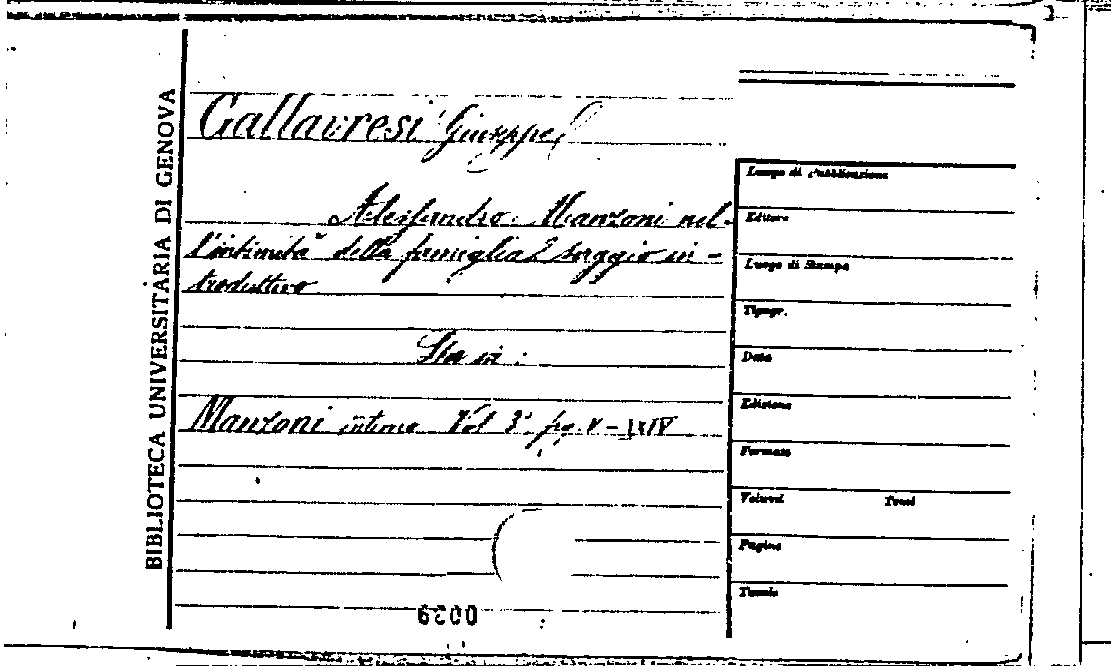 BIBLIOTECA UNIVERSITARIA DI GENOVA
Gallavresi Giuseppe
Alessandro Manzoni nel-
l'intimità della famiglia saggio in-
troduttivo
Sta in:
Manzoni intimo Vol 3° pag. V-
Luogo di Pubblicazione
Editore
Luogo di Stampa
Tipogr.
Data
Edizione
Formato
Volumi Tomi
Pagine
Tavole
0039